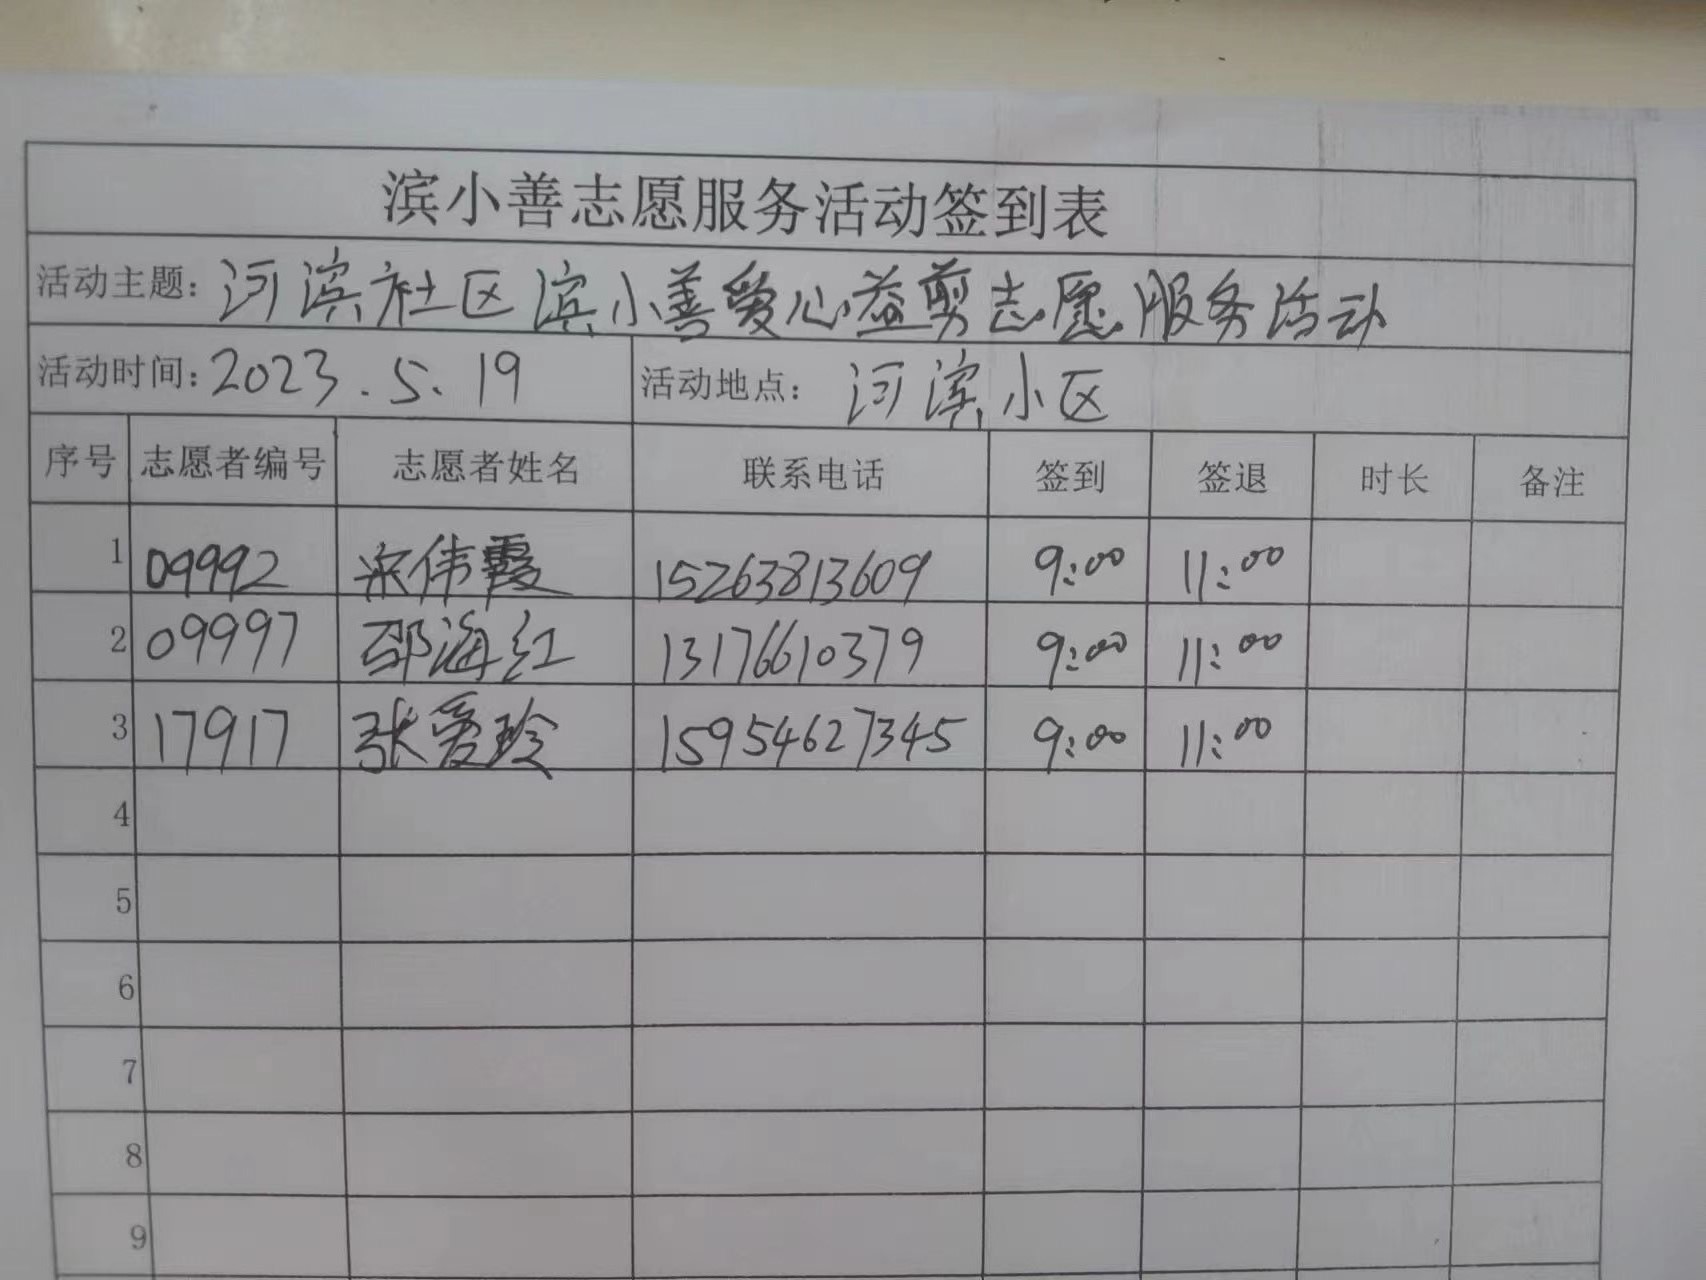 滨小善志愿服务活动签到表
活动主题: 河滨社区滨小善爱心益剪志愿服务活动
活动时间: 2023.5.19 活动地点: 河滨小区
序号 志愿者编号 志愿者姓名 联系电话 签到 签退 时长 备注
1 09992 宋伟霞 15263813609 9:00 11:00
2 09997 邵海红 13176610379 9:00 11:00
3 17917 张爱玲 15954627345 9:00 11:00
4
5
6
7
8
9